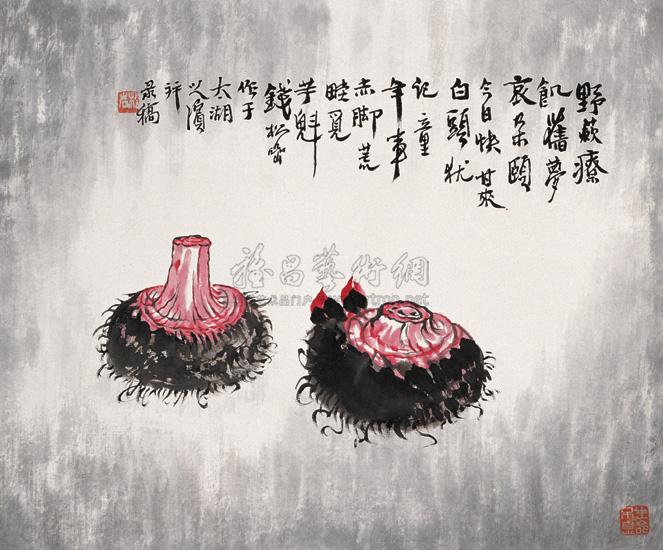 野蔌療
飢舊夢
哀朵頤
今日快甘來
白頭犹
記童
年事
赤脚荒
畦覓
芋魁
錢松嵒
作于
太湖
之濱
并
录稿
雅昌藝術網